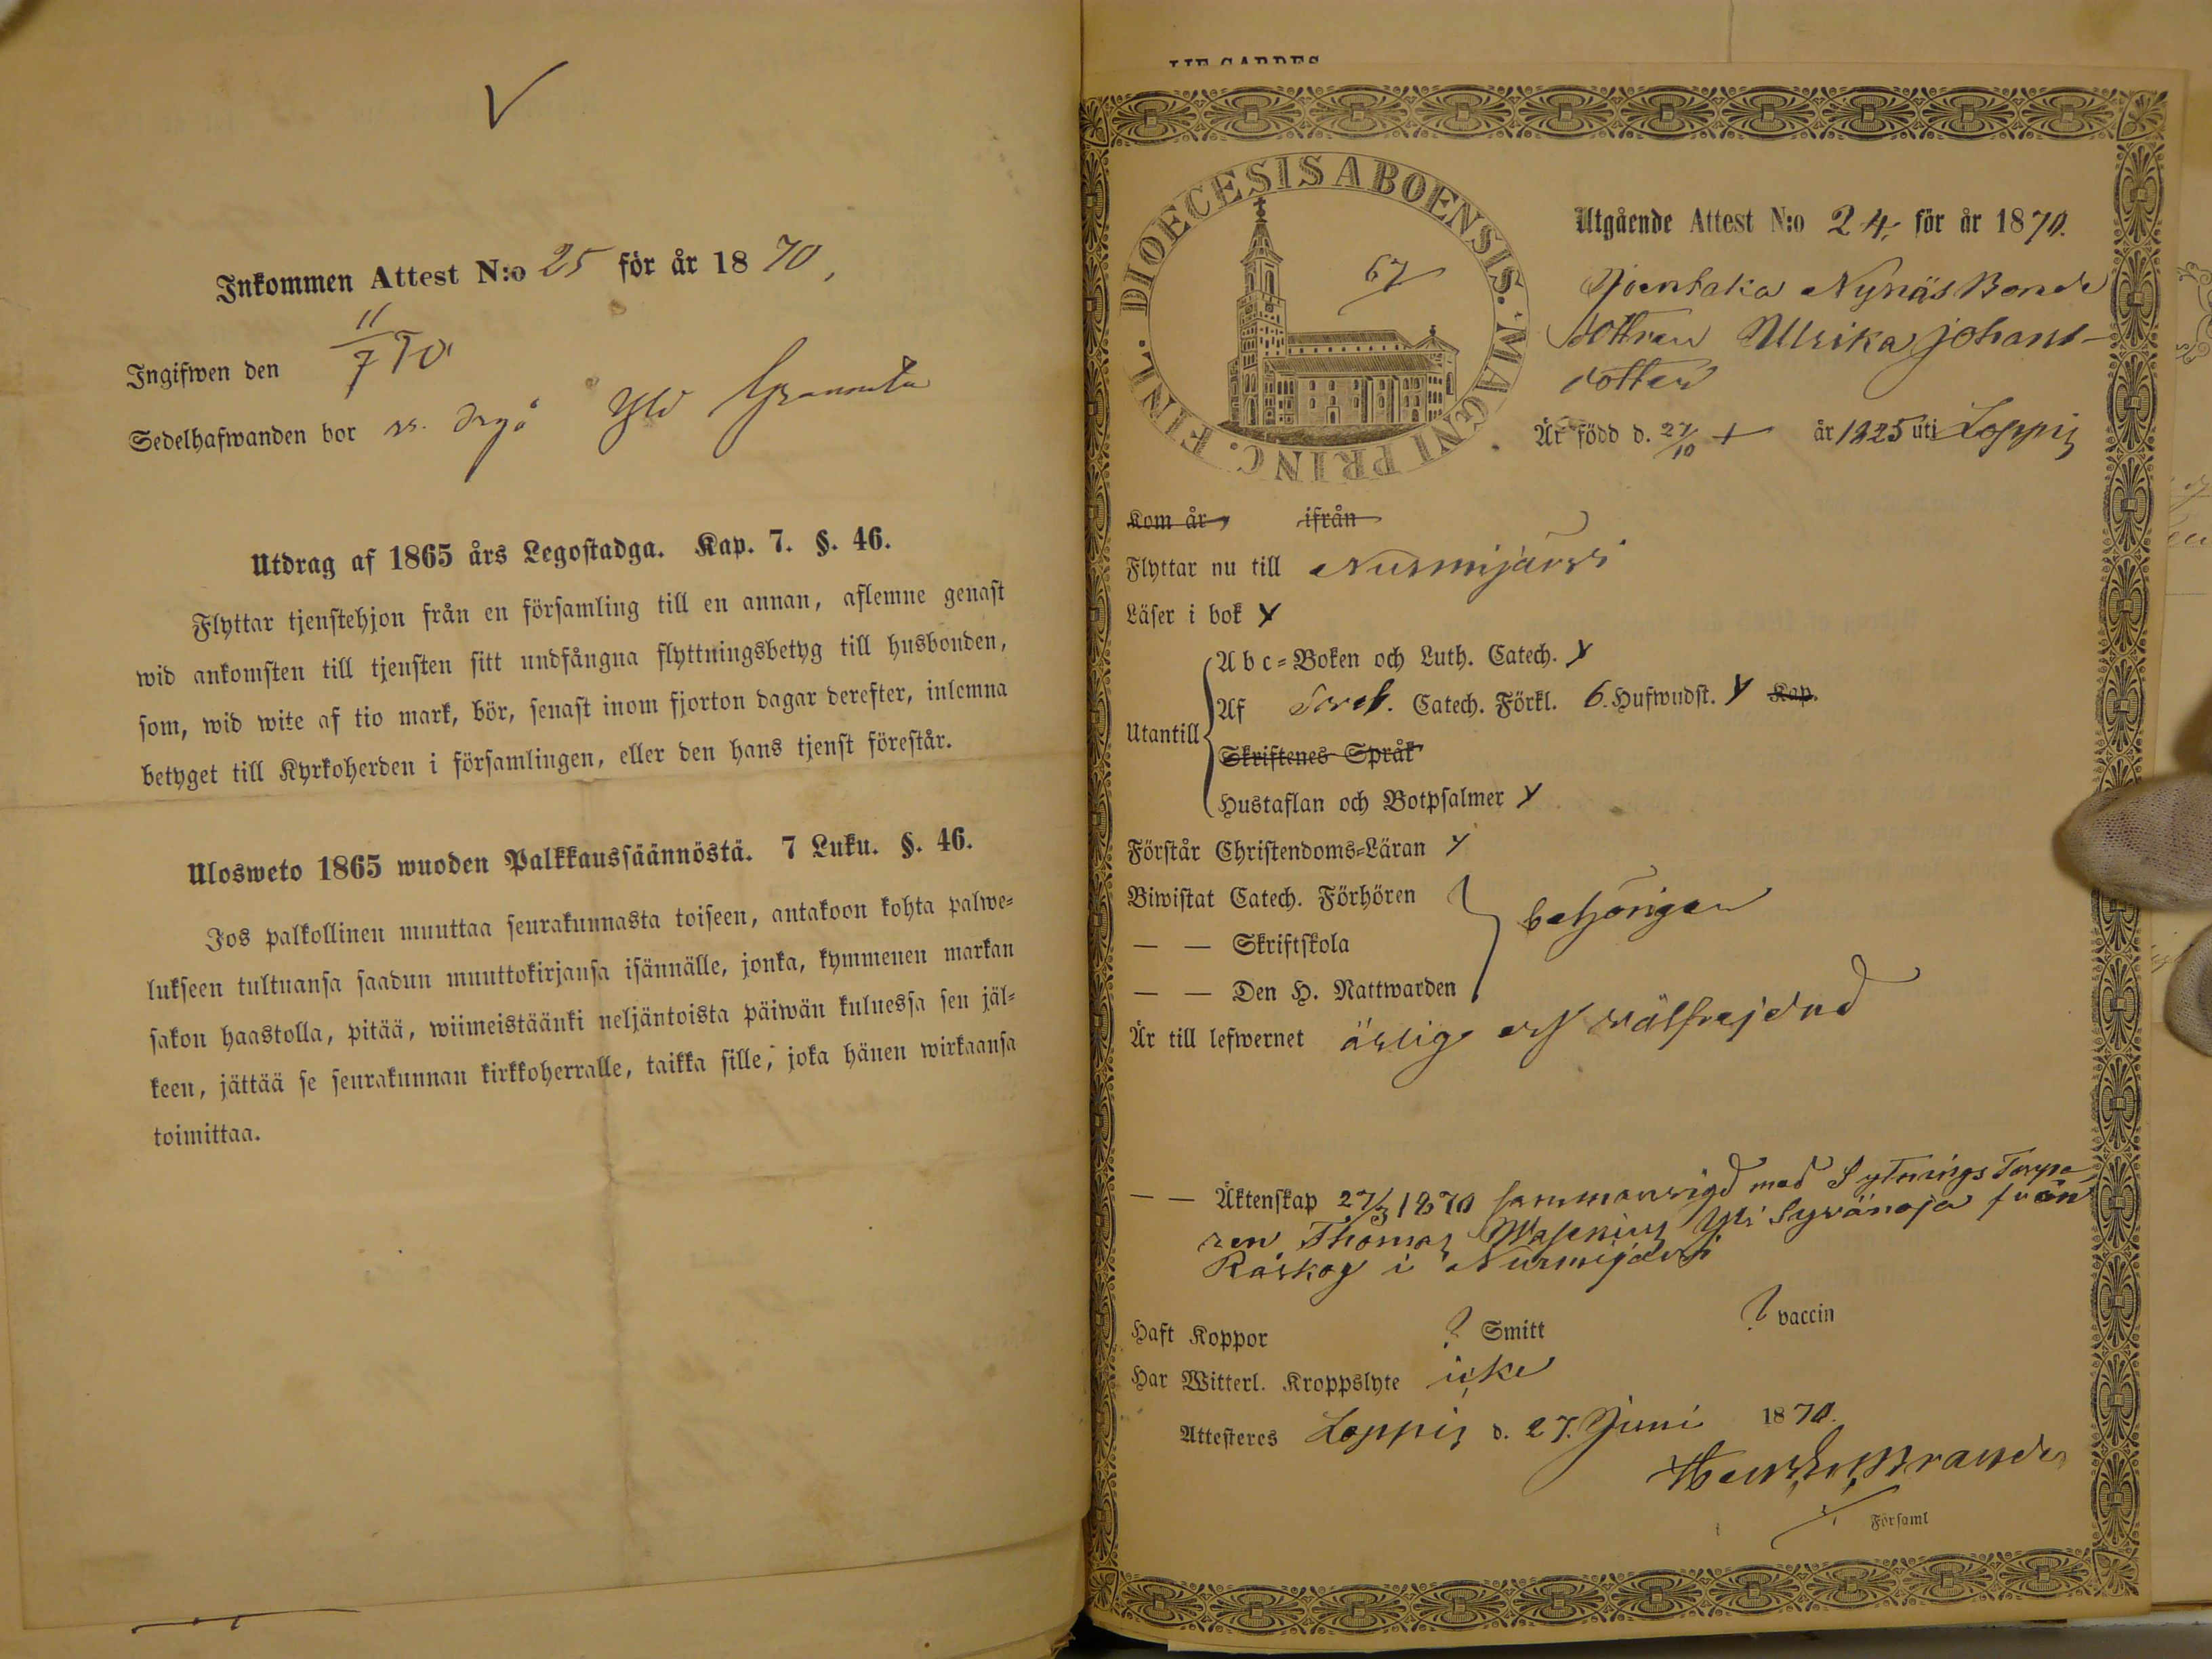 Inkommen Attest N:o 25 för år 1870,
Ingifwen den 11/7 70
Sedelhafwanden bor
Utdrag af 1865 års Legostadga. Kap. 7. §. 46.
Flyttar tjenstehjon från en församling till en annan, aflemne genast
wid ankomsten till tjensten sitt undfångna flyttningsbetyg till husbonden,
som, wid wite af tio mark, bör, senast inom fjorton dagar derefter, inlemna
betyget till Kyrkoherden i församlingen, eller den hans tjenst förestår.
Ulosweto 1865 wuoden Palkkaussäännöstä. 7 Luku. §. 46.
Jos palkollinen muuttaa seurakunnasta toiseen, antakoon kohta palwe=
lukseen tultuansa saadun muuttokirjansa isännälle, jonka, kymmenen markan
sakon haastolla, pitää, wiimeistäänki neljäntoista päiwän kuluessa sen jäl=
keen, jättää se seurakunnan kirkkoherralle, taikka sille, joka hänen wirkaansa
toimittaa.
DIOECESIS ABOENSIS. MAGNI PRINC. FINL.
67
Utgående Attest N:o 24. för år 1870.
Nynäs Bonde
dottren Ulrika Johans-
dotter
Är född d. 27/10 år 1825 uti Loppis
Kom år ifrån
Flyttar nu till Nurmijärvi
Läser i bok
Abc=Boken och Luth. Catech.
Utantill Af Sveb. Catech. Förkl. 6. Hufwudst. Kap.
Skriftenes Språk
Hustaflan och Botpsalmer
Förstår Christendoms=Läran
Biwistat Catech. Förhören
— — Skriftskola behörigen
— — Den H. Nattwarden
Är till lefwernet ärlig och välfrejdad
— — Äktenskap 27/3 1870 sammanvigd med Sytnings Torpa
ren Thomas Wasenius Yli Syvänoja från
Raskog i Nurmijärvi
Haft Koppor ? Smitt ? vaccin
Har Witterl. Kroppslyte icke
Attesteras Loppis d. 27. Juni 1870.
Församl